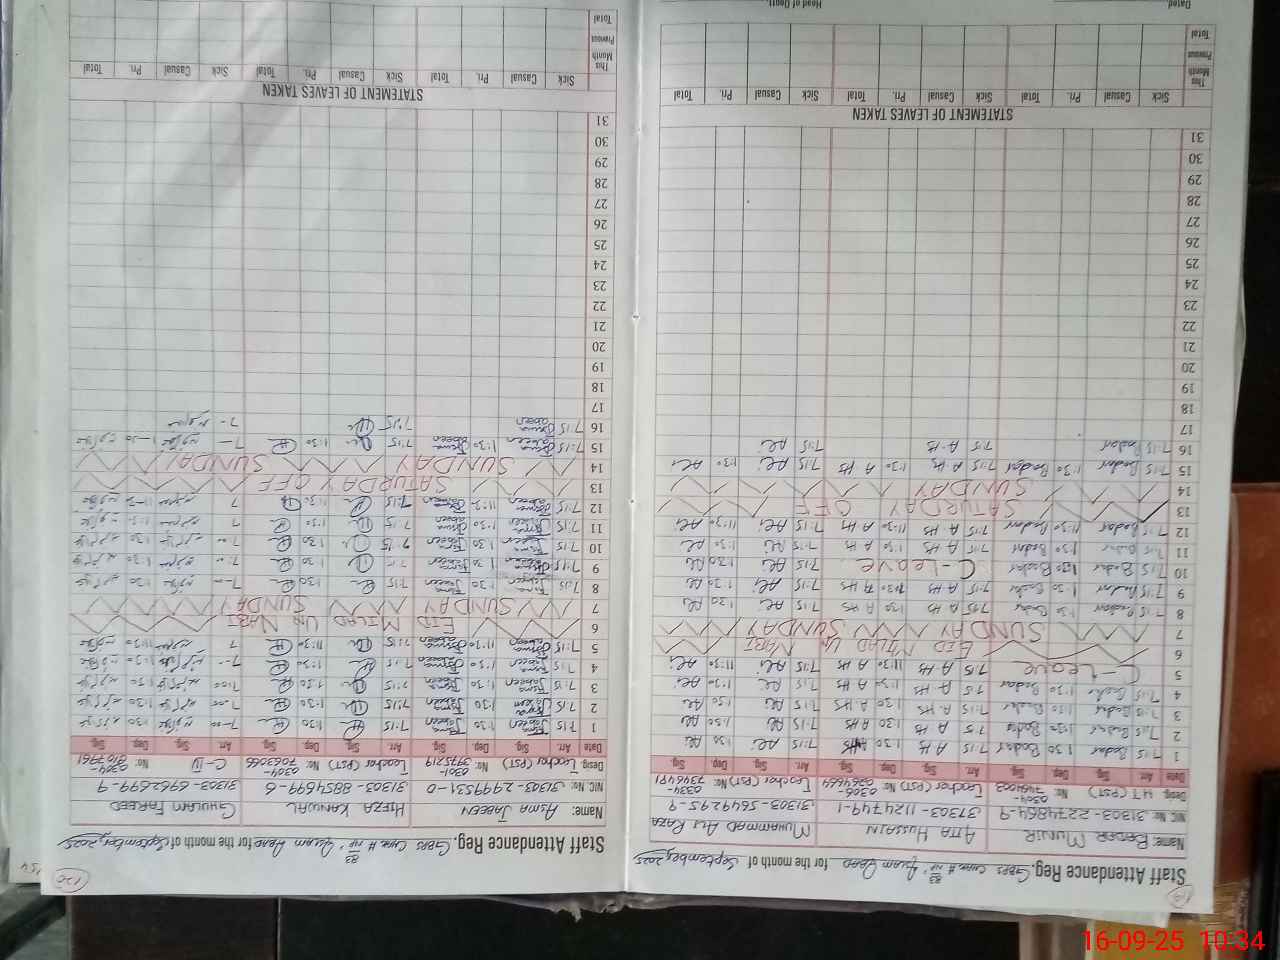 Staff Attendance Reg. GBPS Chak # 83/NP Qaim Abad for the month of September 2025
Name: BADAR MUNIR ATTA HUSSAIN MUHAMMAD ALI RAZA
NIC No: 31303-2274864-9 31303-1124749-1 31303-5649295-9
Desig. HT (PST) No: Teacher (PST) No: Teacher (PST) No:
Date Arr. Sig. Dep. Sig. Arr. Sig. Dep. Sig. Arr. Sig. Dep. Sig.
1 7:15 Badar 1:30 Badar 7:15 A HS 1:30 A HS 7:15 Ali 1:30 Ali
2 7:15 Badar 1:30 Badar 7:15 A HS 1:30 A HS 7:15 Ali 1:30 Ali
3 7:15 Badar 1:30 Badar 7:15 A HS 1:30 A HS 7:15 Ali 1:30 Ali
4 7:15 Badar 1:30 Badar 7:15 A HS 1:30 A HS 7:15 Ali 1:30 Ali
5 C-Leave 7:15 A HS 11:30 A HS 7:15 Ali 11:30 Ali
6 EID MILAD UN NABI
7 SUNDAY SUNDAY
8 7:15 Badar 1:30 Badar 7:15 A HS 1:30 A HS 7:15 Ali 1:30 Ali
9 7:15 Badar 1:30 Badar 7:15 A HS 1:30 A HS 7:15 Ali 1:30 Ali
10 7:15 Badar 1:30 Badar C-Leave 7:15 Ali 1:30 Ali
11 7:15 Badar 1:30 Badar 7:15 A HS 1:30 A HS 7:15 Ali 1:30 Ali
12 7:15 Badar 11:30 Badar 7:15 A HS 11:30 A HS 7:15 Ali 11:30 Ali
13 SATURDAY OFF
14 SUNDAY
15 7:15 Badar 1:30 Badar 7:15 A HS 1:30 A HS 7:15 Ali 1:30 Ali
16 7:15 Badar 7:15 A HS 7:15 Ali
17
18
19
20
21
22
23
24
25
26
27
28
29
30
31
STATEMENT OF LEAVES TAKEN
Sick Casual Pri. Total Sick Casual Pri. Total Sick Casual Pri. Total
This Month
Previous
Total
Dated. Head of Deptt.
126
Staff Attendance Reg. GBPS Chak # 83/NP Qaim Abad for the month of September, 2025
Name: ASMA JABEEN HIFZA KANWAL GHULAM FAREED
NIC No: 31303-2499531-0 31303-8854699-6 31303-6962699-9
Desig. Teacher (PST) No: 0301-3975219 Teacher (PST) No: 0304-7063066 C-IV No:
Date Arr. Sig. Dep. Sig. Arr. Sig. Dep. Sig. Arr. Sig. Dep. Sig.
1 7:15 Asma Jabeen 1:30 Asma Jabeen 7:15 1:30 7:00 1:30
2 7:15 Asma Jabeen 1:30 Asma Jabeen 7:15 1:30 7:00 1:30
3 7:15 Asma Jabeen 1:30 Asma Jabeen 7:15 1:30 7:00 1:30
4 7:15 Asma Jabeen 1:30 Asma Jabeen 7:15 1:30 7 1:30
5 7:15 Asma Jabeen 11:30 Asma Jabeen 7:15 11:30 7 11:30
6 EID MILAD UN NABI
7 SUNDAY SUNDAY
8 7:15 Asma Jabeen 1:30 Asma Jabeen 7:15 1:30 7:00 1:30
9 7:15 Asma Jabeen 1:30 Asma Jabeen 7:15 1:30 7:00 1:30
10 7:15 Asma Jabeen 1:30 Asma Jabeen 7:15 1:30 7:00 1:30
11 7:15 Asma Jabeen 1:30 Asma Jabeen 7:15 1:30 7 1:30
12 7:15 Asma Jabeen 11:30 Asma Jabeen 7:15 11:30 7 11:30
13 SATURDAY OFF
14 SUNDAY SUNDAY
15 7:15 Asma Jabeen 1:30 Asma Jabeen 7:15 1:30 7 1:30
16 7:15 Asma Jabeen 7:15 7
17
18
19
20
21
22
23
24
25
26
27
28
29
30
31
STATEMENT OF LEAVES TAKEN
Sick Casual Pri. Total Sick Casual Pri. Total Sick Casual Pri. Total
This Month
Previous
Total
16-09-25 10:34